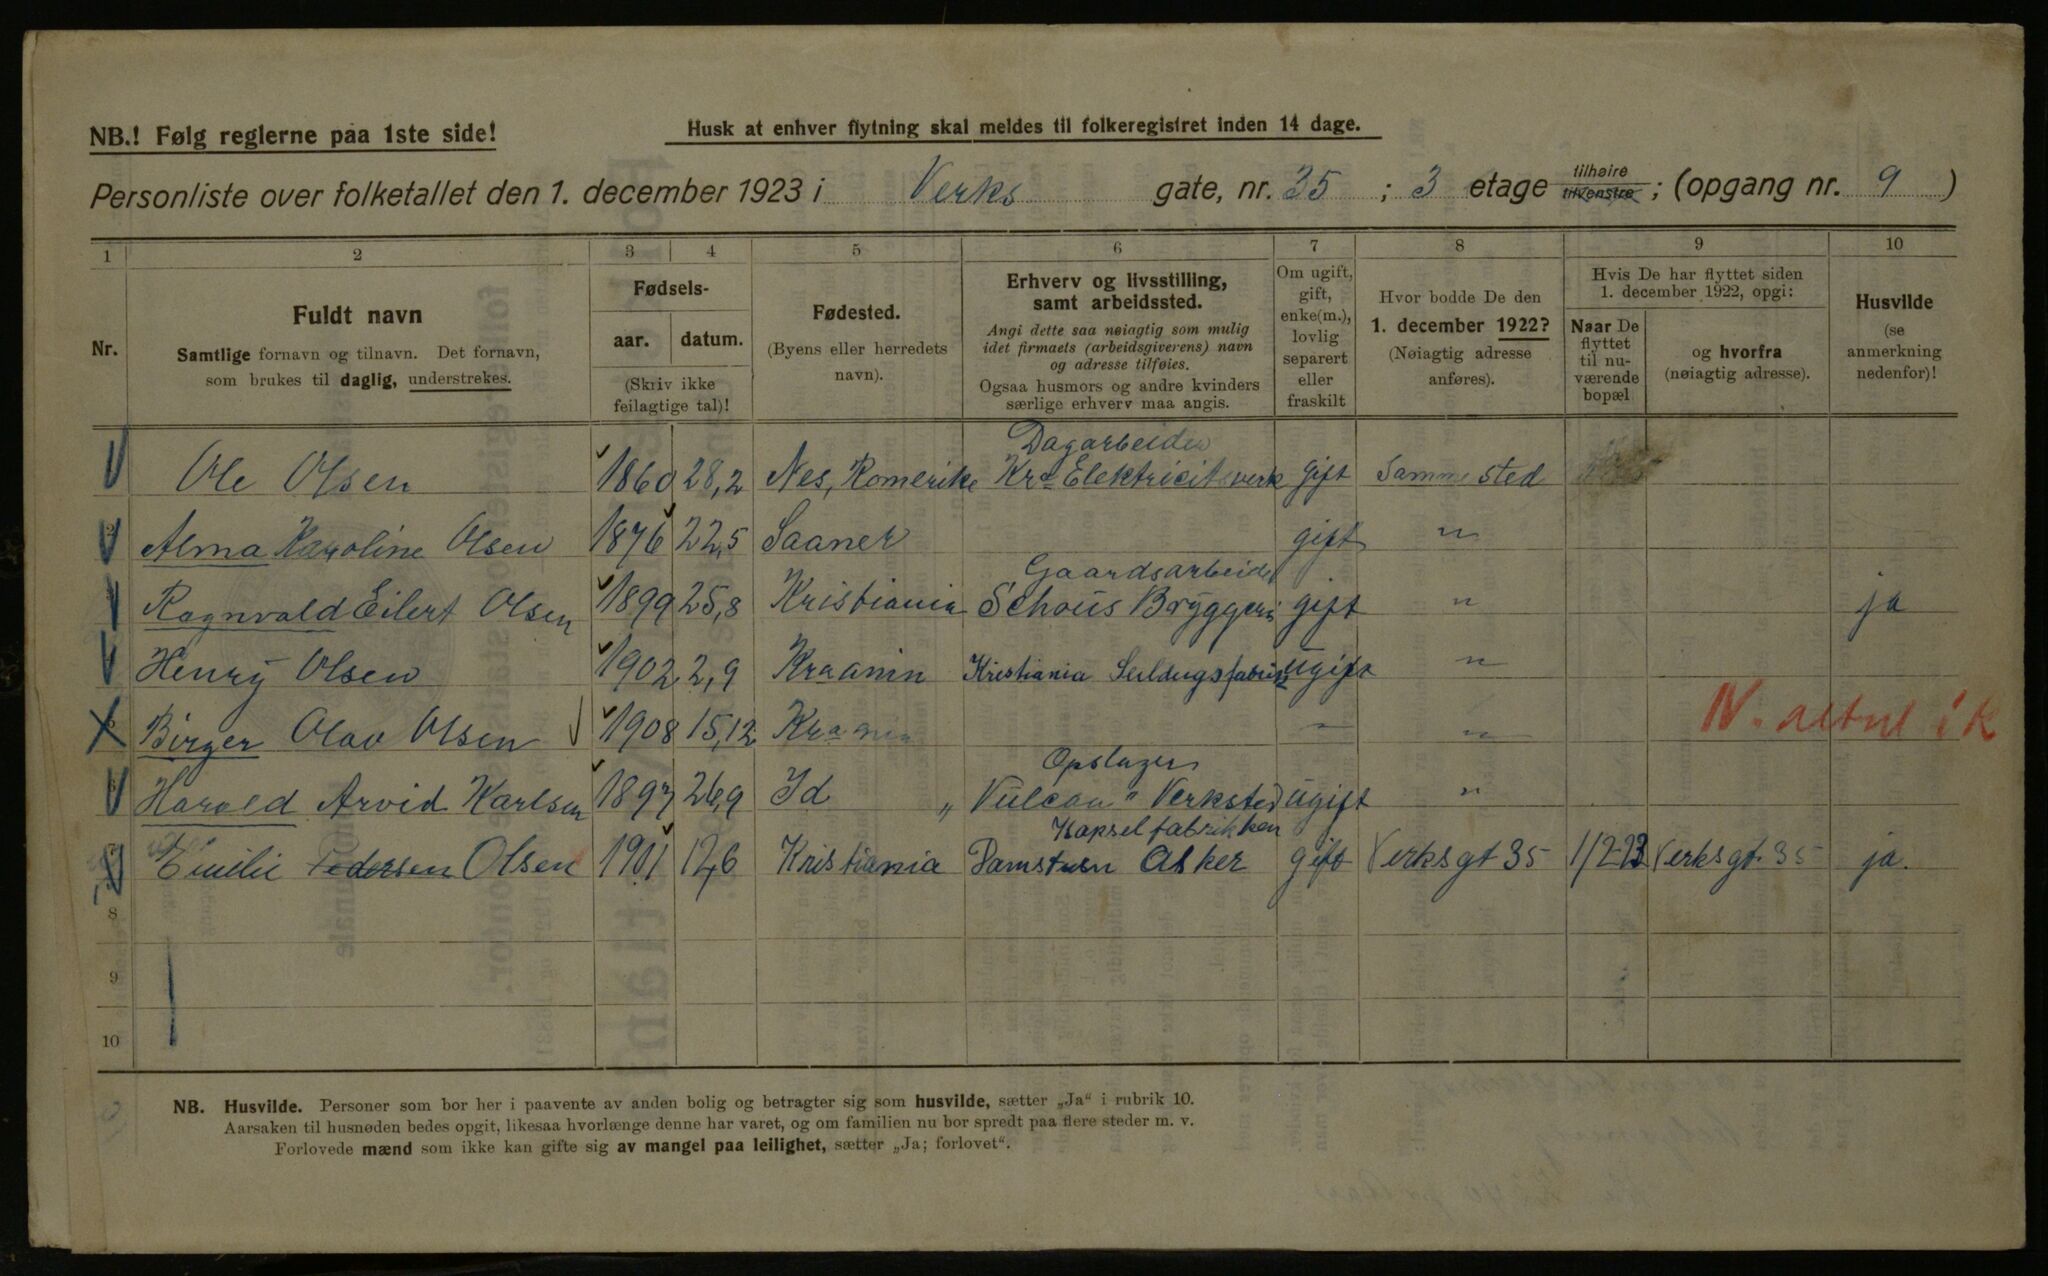 NB.! Følg reglerne paa 1ste side!
Husk at enhver flytning skal meldes til folkeregistret inden 14 dage.
Personliste over folketallet den 1. december 1923 i Verks gate, nr. 35 ; 3 etage tilhøire tilvenstre ; (opgang nr. 9 )
1 2 3 4 5 6 7 8 9 10
Nr.
Fuldt navn
Samtlige fornavn og tilnavn. Det fornavn,
som brukes til daglig, understrekes.
Fødsels-
aar. datum.
(Skriv ikke
feilagtige tal)!
Fødested.
(Byens eller herredets
navn).
Erhverv og livsstilling,
samt arbeidssted.
Angi dette saa nøiagtig som mulig
idet firmaets (arbeidsgiverens) navn
og adresse tilføies.
Ogsaa husmors og andre kvinders
særlige erhverv maa angis.
Om ugift,
gift,
enke(m.),
lovlig
separert
eller
fraskilt
Hvor bodde De den
1. december 1922?
(Nøiagtig adresse
anføres).
Hvis De har flyttet siden
1. december 1922, opgi:
Naar De
flyttet
til nu-
værende
bopæl
og hvorfra
(nøiagtig adresse).
Husvilde
(se
anmerkning
nedenfor)!
Dagarbeider
Ole Olsen 1860 28,2 Nes, Romerike Kra Elektricitsverk gift Samme sted
Alma Karoline Olsen 1876 22,5 Saaner gift "
Gaardsarbeider
Ragnvald Eilert Olsen 1899 25,8 Kristiania Schous Bryggeri gift " ja
Henry Olsen 1902 2,9 Kraania Kristiania Seildugsfabrik ugift "
Birger Olav Olsen 1908 15,12 Kraania " "
Opslager
Harald Arvid Karlsen 1897 26,9 Id „Vulcan" Verksted ugift "
Kapselfabrikken
Emilie Pedersen Olsen 1901 12,6 Kristiania Damstuen Asker gift Verksgt 35 1/2-23 Verksgt. 35 ja.
8
9
10
NB. Husvilde. Personer som bor her i paavente av anden bolig og betragter sig som husvilde, sætter „Ja" i rubrik 10.
Aarsaken til husnøden bedes opgit, likesaa hvorlænge denne har varet, og om familien nu bor spredt paa flere steder m. v.
Forlovede mænd som ikke kan gifte sig av mangel paa leilighet, sætter „Ja; forlovet".